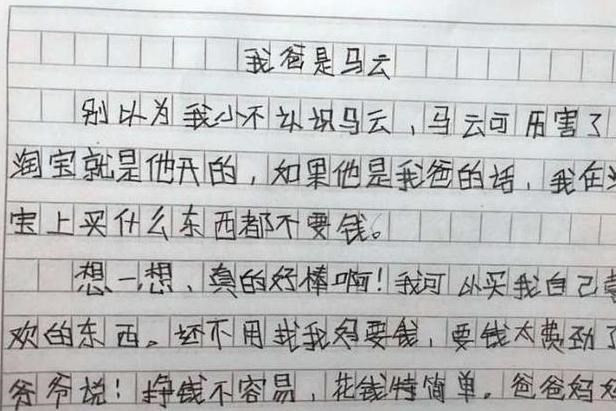 我爸是马云
别以为我小不认识马云，马云可历害了
淘宝就是他开的，如果他是我爸的话，我在
宝上买什么东西都不要钱。
想一想，真的好棒啊！我可以买我自己
欢的东西。还不用找我妈要钱，要钱太费劲了
爷爷说！挣钱不容易，花钱特简单。爸爸妈